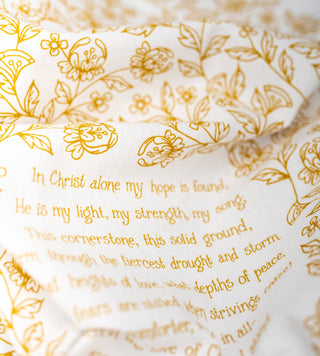 In Christ alone my hope is found,
He is my light, my strength, my song;
This cornerstone, this solid ground,
through the fiercest drought and storm.
heights of love, what depths of peace,
fears are stilled, when strivings cease!
comforter, in all—